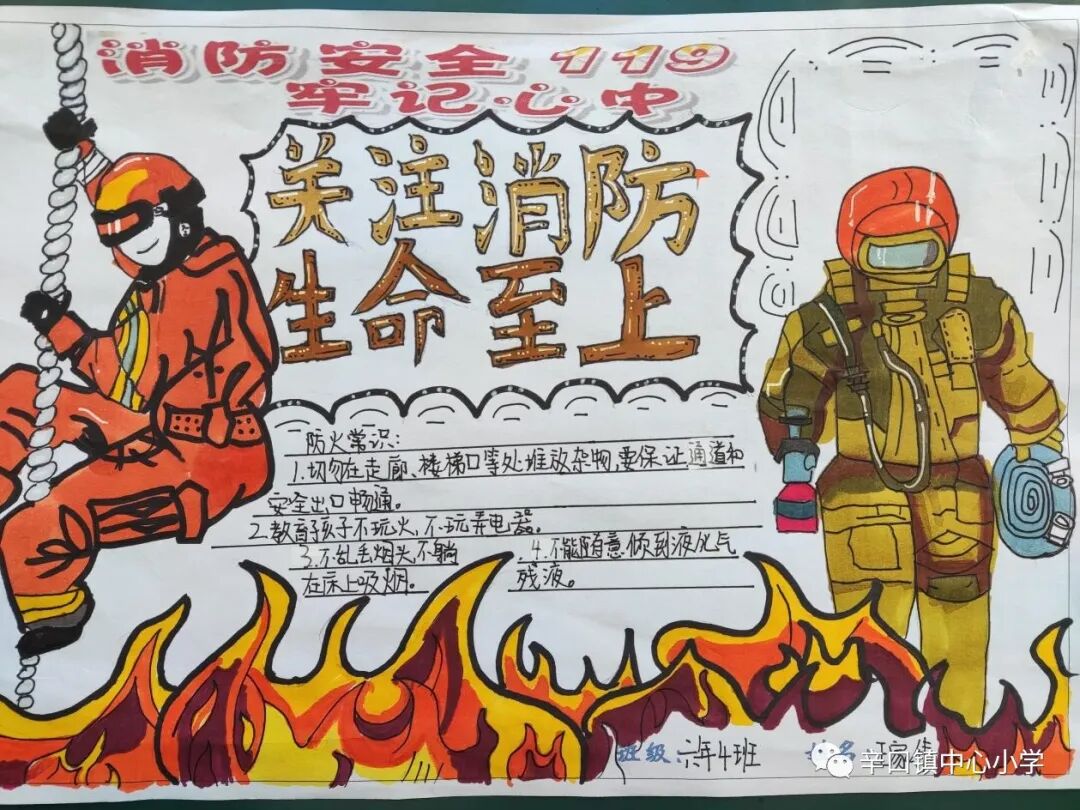 消防安全119
牢记心中
关注消防
生命至上
防火常识:
1.切勿在走廊、楼梯口等处堆放杂物,要保证通道和
安全出口畅通。
2.教育孩子不玩火,不玩弄电器。
3.不乱丢烟头,不躺
在床上吸烟。
4.不能随意倾到液化气
残液。
班级 六年4班
辛口镇中心小学